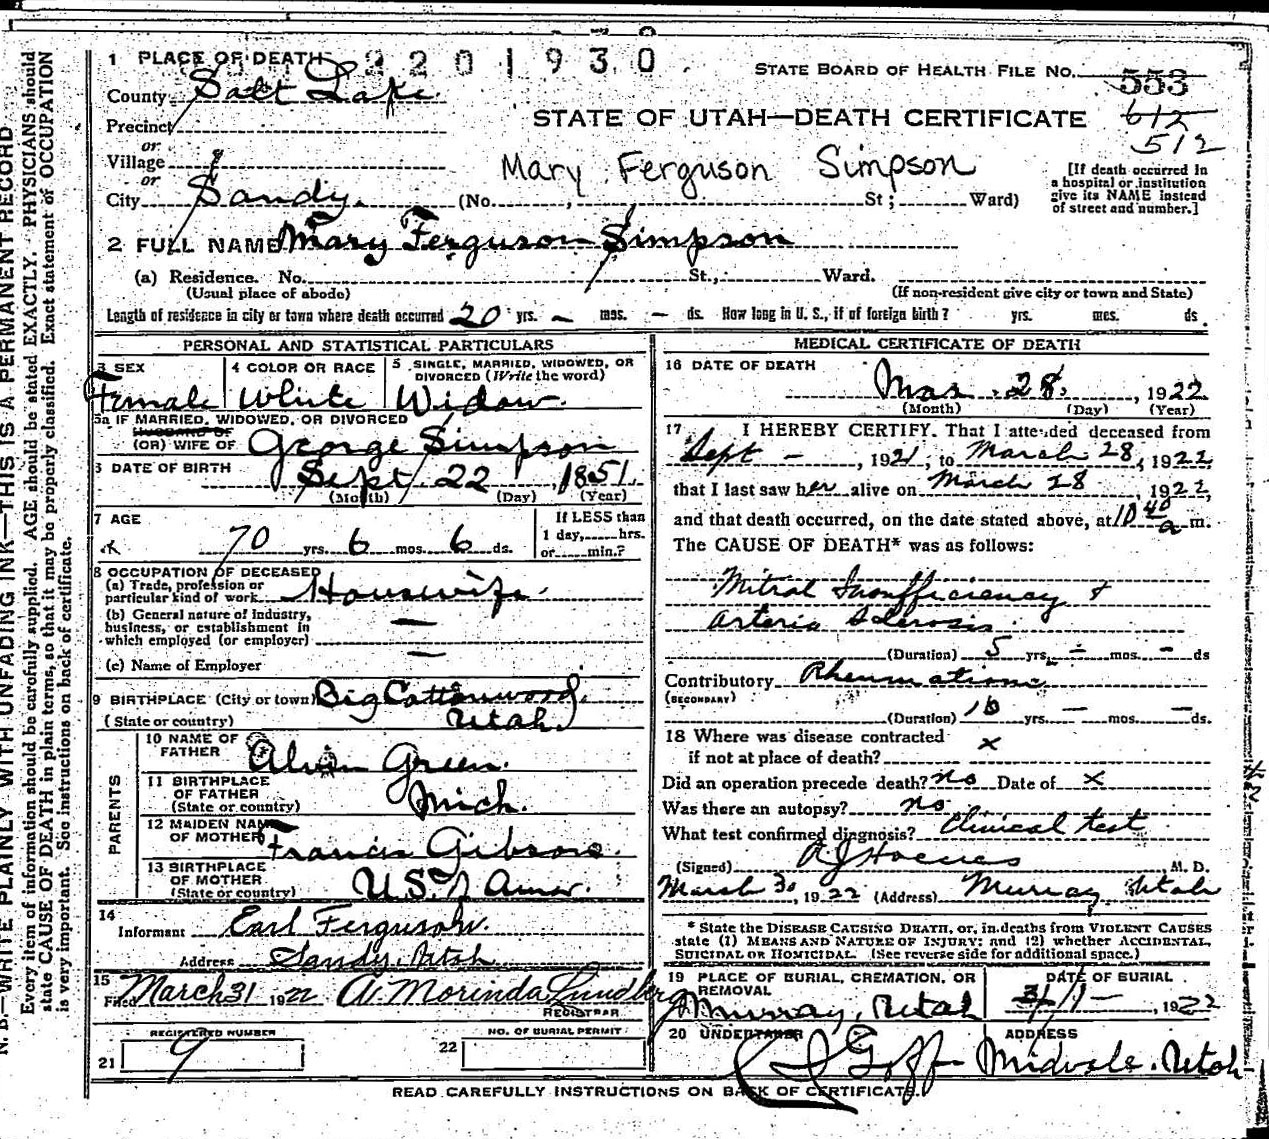 2201930
1 PLACE OF DEATH
STATE BOARD OF HEALTH FILE NO. 553
County Salt Lake
612
STATE OF UTAH—DEATH CERTIFICATE
512
Precinct
or
Village
Mary Ferguson Simpson
[If death occurred in a hospital or institution give its NAME instead of street and number.]
or
City Sandy. (No. , St; Ward)
2 FULL NAME Mary Ferguson Simpson
(a) Residence. No. St., Ward.
(Usual place of abode) (If non-resident give city or town and State)
Length of residence in city or town where death occurred 20 yrs. — mos. — ds. How long in U. S., if of foreign birth? yrs. mos. ds.
PERSONAL AND STATISTICAL PARTICULARS
3 SEX 4 COLOR OR RACE 5 SINGLE, MARRIED, WIDOWED, OR DIVORCED (Write the word)
Female White Widow.
5a IF MARRIED, WIDOWED, OR DIVORCED
HUSBAND OF
(OR) WIFE OF George Simpson
6 DATE OF BIRTH Sept 22, 1851
(Month) (Day) (Year)
7 AGE 70 yrs. 6 mos. 6 ds.
If LESS than 1 day, hrs. or min.?
8 OCCUPATION OF DECEASED
(a) Trade, profession or particular kind of work Housewife.
(b) General nature of industry, business, or establishment in which employed (or employer) —
(c) Name of Employer —
9 BIRTHPLACE (City or town) Big Cottonwood,
(State or country) Utah.
PARENTS
10 NAME OF FATHER Alvin Green.
11 BIRTHPLACE OF FATHER (State or country) Mich.
12 MAIDEN NAME OF MOTHER Francis Gibson.
13 BIRTHPLACE OF MOTHER (State or country) U.S. Amer.
14 Informant Earl Ferguson.
Address Sandy, Utah
15 Filed March 31 1922 A. Morinda Lundberg
REGISTRAR
REGISTERED NUMBER NO. OF BURIAL PERMIT
21 9 22
MEDICAL CERTIFICATE OF DEATH
16 DATE OF DEATH
Mar. 28, 1922
(Month) (Day) (Year)
17 I HEREBY CERTIFY, That I attended deceased from
Sept —, 1921, to March 28, 1922,
that I last saw her alive on March 28, 1922,
and that death occurred, on the date stated above, at 10 40 a m.
The CAUSE OF DEATH* was as follows:
Mitral Insufficiency +
Arterio Sclerosis
(Duration) 5 yrs. — mos. — ds
Contributory Rheumatism
(SECONDARY)
(Duration) 10 yrs. — mos. — ds.
18 Where was disease contracted
if not at place of death? x
Did an operation precede death? no Date of x
Was there an autopsy? no
What test confirmed diagnosis? Clinical test
(Signed) M. D.
March 30, 1922 (Address) Murray Utah
* State the DISEASE CAUSING DEATH, or, in deaths from VIOLENT CAUSES state (1) MEANS AND NATURE OF INJURY; and (2) whether ACCIDENTAL, SUICIDAL OR HOMICIDAL. (See reverse side for additional space.)
19 PLACE OF BURIAL, CREMATION, OR REMOVAL DATE OF BURIAL
Murray, Utah 1922
20 UNDERTAKER ADDRESS
Goff Midvale. Utah
READ CAREFULLY INSTRUCTIONS ON BACK OF CERTIFICATE.
N. B.—WRITE PLAINLY WITH UNFADING INK—THIS IS A PERMANENT RECORD
Every item of information should be carefully supplied. AGE should be stated EXACTLY. PHYSICIANS should
state CAUSE OF DEATH in plain terms, so that it may be properly classified. Exact statement of OCCUPATION
is very important. See instructions on back of certificate.